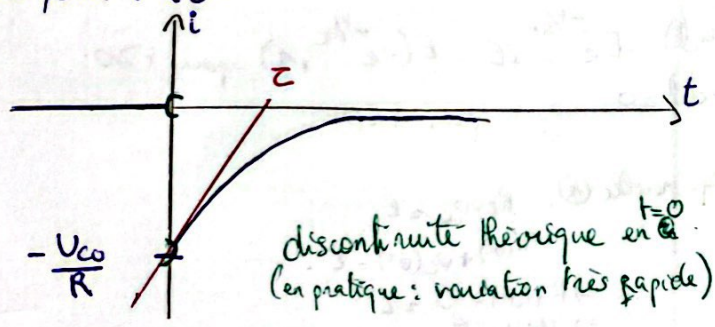 i
τ
t
- U_C0 / R
discontinuité théorique en t=0.
(en pratique : variation très rapide)